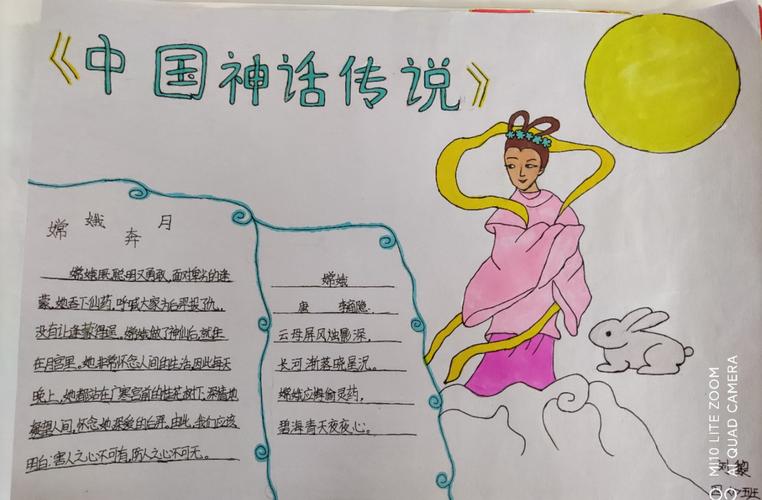 《中国神话传说》
嫦娥奔月
嫦娥既聪明又勇敢,面对卑劣的逢
蒙,她吞下仙药,呼喊大家为白羿报仇,
没有让逢蒙得逞。嫦娥做了神仙后,就住
在月宫里。她非常怀念人间的生活,因此每天
晚上,她都站在广寒宫前的桂花树下,深情地
凝望人间,怀念她深爱的后羿。由此,我们应该
明白:害人之心不可有,防人之心不可无。
嫦娥
唐 李商隐
云母屏风烛影深,
长河渐落晓星沉。
嫦娥应悔偷灵药,
碧海青天夜夜心。
刘黎
班
MI 10 LITE ZOOM
AI QUAD CAMERA